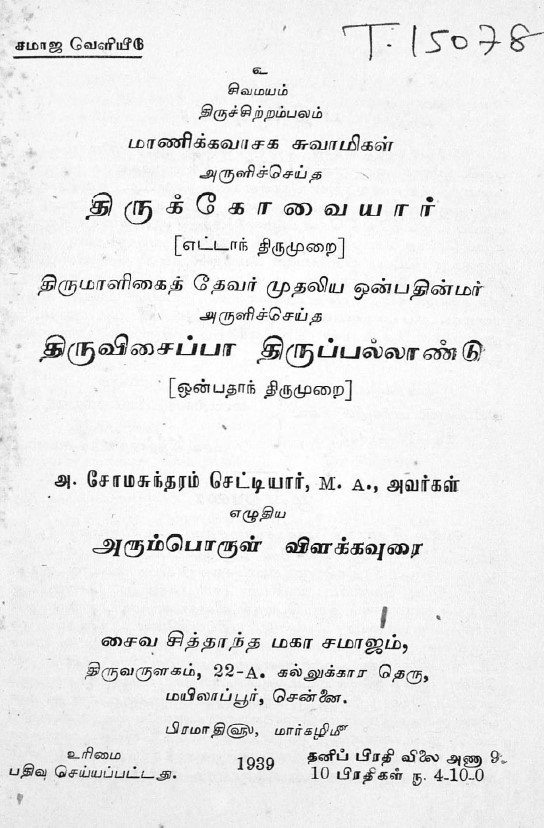 சமாஜ வெளியீடு
T. 15078
உ
சிவமயம்
திருச்சிற்றம்பலம்
மாணிக்கவாசக சுவாமிகள்
அருளிச்செய்த
திருக்கோவையார்
[எட்டாந் திருமுறை]
திருமாளிகைத் தேவர் முதலிய ஒன்பதின்மர்
அருளிச்செய்த
திருவிசைப்பா திருப்பல்லாண்டு
[ஒன்பதாந் திருமுறை]
அ. சோமசுந்தரம் செட்டியார், M. A., அவர்கள்
எழுதிய
அரும்பொருள் விளக்கவுரை
சைவ சித்தாந்த மகா சமாஜம்,
திருவருளகம், 22-A. கல்லுக்கார தெரு,
மயிலாப்பூர், சென்னை.
பிரமாதி௵, மார்கழி௴
உரிமை
பதிவு செய்யப்பட்டது.
1939
தனிப் பிரதி விலை அணா 9.
10 பிரதிகள் ரூ. 4-10-0